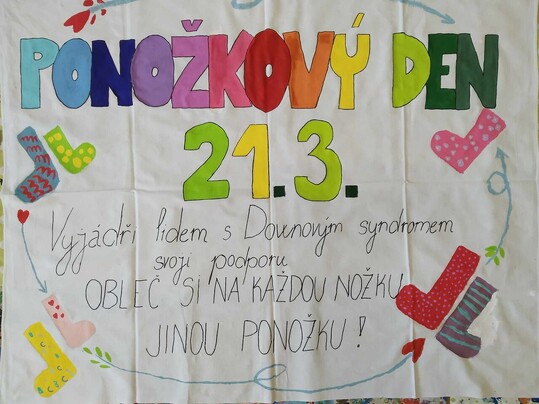 PONOŽKOVÝ DEN
21.3.
Vyjádři lidem s Downovým syndromem
svoji podporu
OBLEČ SI NA KAŽDOU NOŽKU
JINOU PONOŽKU!